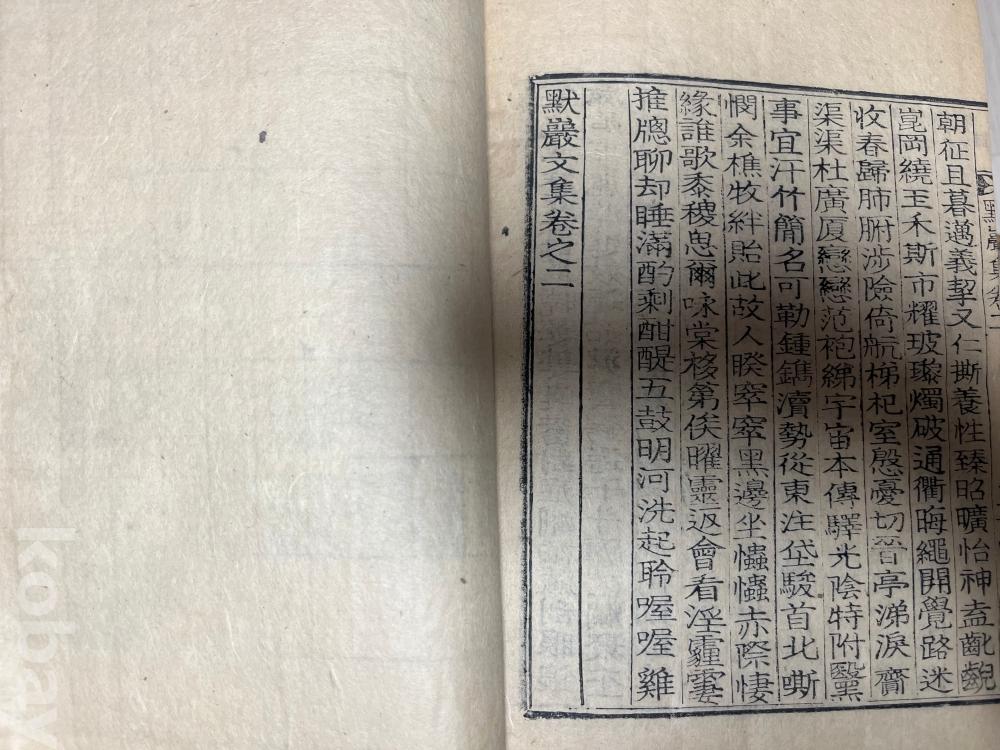 黙巖集卷二
朝征且暮邁義挈又仁撕養性臻昭曠怡神盍齔齯
崑岡繞玉禾斯市耀玻瓈燭破通衢晦繩開覺路迷
收春歸肺腑涉險倚航梯杞室慇憂切晉亭涕淚齊
渠渠杜廣厦戀戀范袍綈宇宙本傳驛光陰特附醫
事宜汗竹簡名可勒鍾鐫瀆勢從東注岱駿首北嘶
憫余樵牧絆貽此故人睽窣窣黑邊坐爞爞赤際悽
緣誰歌黍稷思爾咏棠栘第俟曜靈返會看淫霾霋
推牕聊却睡滿酌剩酣醍五鼓明河洗起聆喔喔雞
默巖文集卷之二
kobay